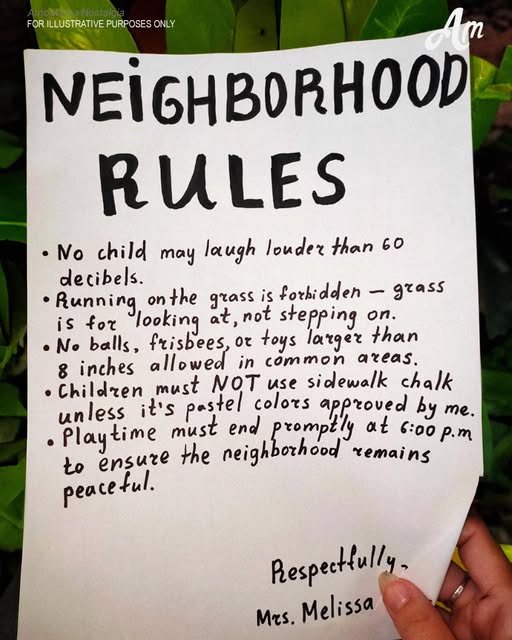 Amomama Nostalgia
FOR ILLUSTRATIVE PURPOSES ONLY
Am
NEiGHBORHOOD
RULES
• No child may laugh louder than 60
decibels.
• Running on the grass is forbidden – grass
is for looking at, not stepping on.
• No balls, frisbees, or toys larger than
8 inches allowed in common areas.
• Children must NOT use sidewalk chalk
unless it's pastel colors approved by me.
• Playtime must end promptly at 6:00 p.m
to ensure the neighborhood remains
peaceful.
Respectfully,
Mrs. Melissa